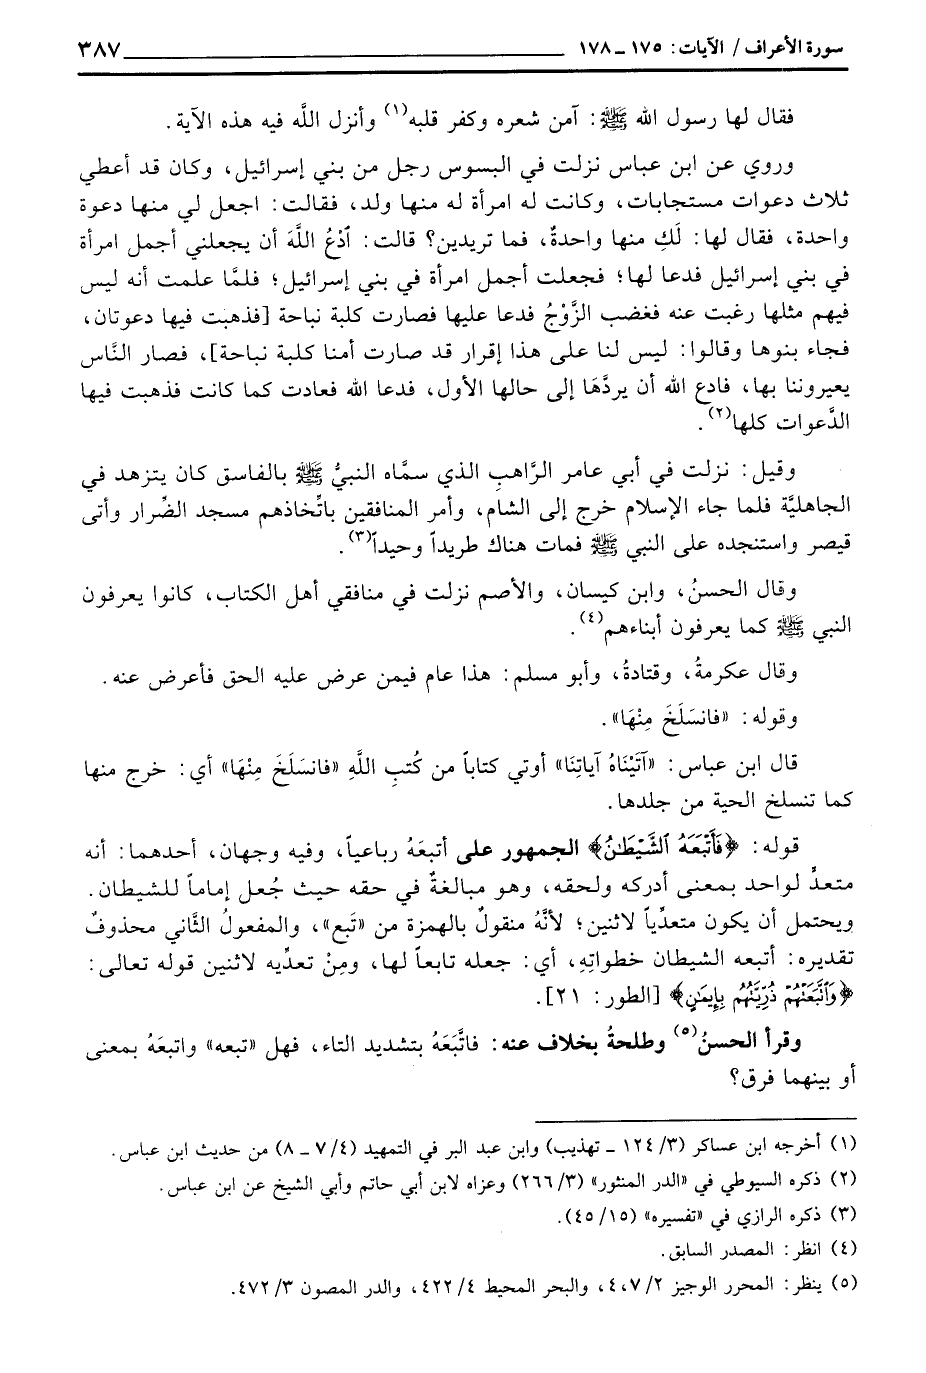 سورة الأعراف / الآيات: ١٧٥ ــ ١٧٨ ٣٨٧
فقال لها رسول الله ﷺ: آمن شعره وكفر قلبه(١) وأنزل اللَّه فيه هذه الآية.
وروي عن ابن عباس نزلت في البسوس رجل من بني إسرائيل، وكان قد أعطي
ثلاث دعوات مستجابات، وكانت له امرأة له منها ولد، فقالت: اجعل لي منها دعوة
واحدة، فقال لها: لَكِ منها واحدةٌ، فما تريدين؟ قالت: ٱدْعُ اللَّهَ أن يجعلني أجمل امرأة
في بني إسرائيل فدعا لها؛ فجعلت أجمل امرأة في بني إسرائيل؛ فلمَّا علمت أنه ليس
فيهم مثلها رغبت عنه فغضب الزَّوْجُ فدعا عليها فصارت كلبة نباحة [فذهبت فيها دعوتان،
فجاء بنوها وقالوا: ليس لنا على هذا إقرار قد صارت أمنا كلبة نباحة]، فصار النَّاس
يعيروننا بها، فادع الله أن يردَّهَا إلى حالها الأول، فدعا الله فعادت كما كانت فذهبت فيها
الدَّعوات كلها(٢).
وقيل: نزلت في أبي عامر الرَّاهبِ الذي سمَّاه النبيُّ ﷺ بالفاسق كان يتزهد في
الجاهليَّة فلما جاء الإسلام خرج إلى الشام، وأمر المنافقين باتِّخاذهم مسجد الضِّرار وأتى
قيصر واستنجده على النبي ﷺ فمات هناك طريداً وحيداً(٣).
وقال الحسنُ، وابن كيسان، والأصم نزلت في منافقي أهل الكتاب، كانوا يعرفون
النبي ﷺ كما يعرفون أبناءهم(٤).
وقال عكرمةُ، وقتادةُ، وأبو مسلم: هذا عام فيمن عرض عليه الحق فأعرض عنه.
وقوله: «فانسَلَخَ مِنْهَا».
قال ابن عباس: «آتَيْنَاهُ آياتِنَا» أوتي كتاباً من كُتبِ اللَّهِ «فانسَلَخَ مِنْهَا» أي: خرج منها
كما تنسلخ الحية من جلدها.
قوله: ﴿فَأَتْبَعَهُ ٱلشَّيْطَٰنُ﴾ الجمهور على أتبعَهُ رباعياً، وفيه وجهان، أحدهما: أنه
متعدٍّ لواحد بمعنى أدركه ولحقه، وهو مبالغةٌ في حقه حيث جُعل إماماً للشيطان.
ويحتمل أن يكون متعدِّياً لاثنين؛ لأنَّهُ منقولٌ بالهمزة من «تَبع»، والمفعولُ الثَّاني محذوفٌ
تقديره: أتبعه الشيطان خطواتِهِ، أي: جعله تابعاً لها، ومِنْ تعدِّيه لاثنين قوله تعالى:
﴿وَأَتْبَعْنَٰهُمْ ذُرِّيَّتَهُم بِإِيمَٰنٍ﴾ [الطور: ٢١].
وقرأ الحسنُ(٥) وطلحةُ بخلاف عنه: فاتَّبَعَهُ بتشديد التاء، فهل «تبعه» واتبعَهُ بمعنى
أو بينهما فرق؟
(١) أخرجه ابن عساكر (٣/ ١٢٤ ــ تهذيب) وابن عبد البر في التمهيد (٤/ ٧ ــ ٨) من حديث ابن عباس.
(٢) ذكره السيوطي في «الدر المنثور» (٣/ ٢٦٦) وعزاه لابن أبي حاتم وأبي الشيخ عن ابن عباس.
(٣) ذكره الرازي في «تفسيره» (١٥/ ٤٥).
(٤) انظر: المصدر السابق.
(٥) ينظر: المحرر الوجيز ٢/ ٤،٧، والبحر المحيط ٤/ ٤٢٢، والدر المصون ٣/ ٤٧٢.